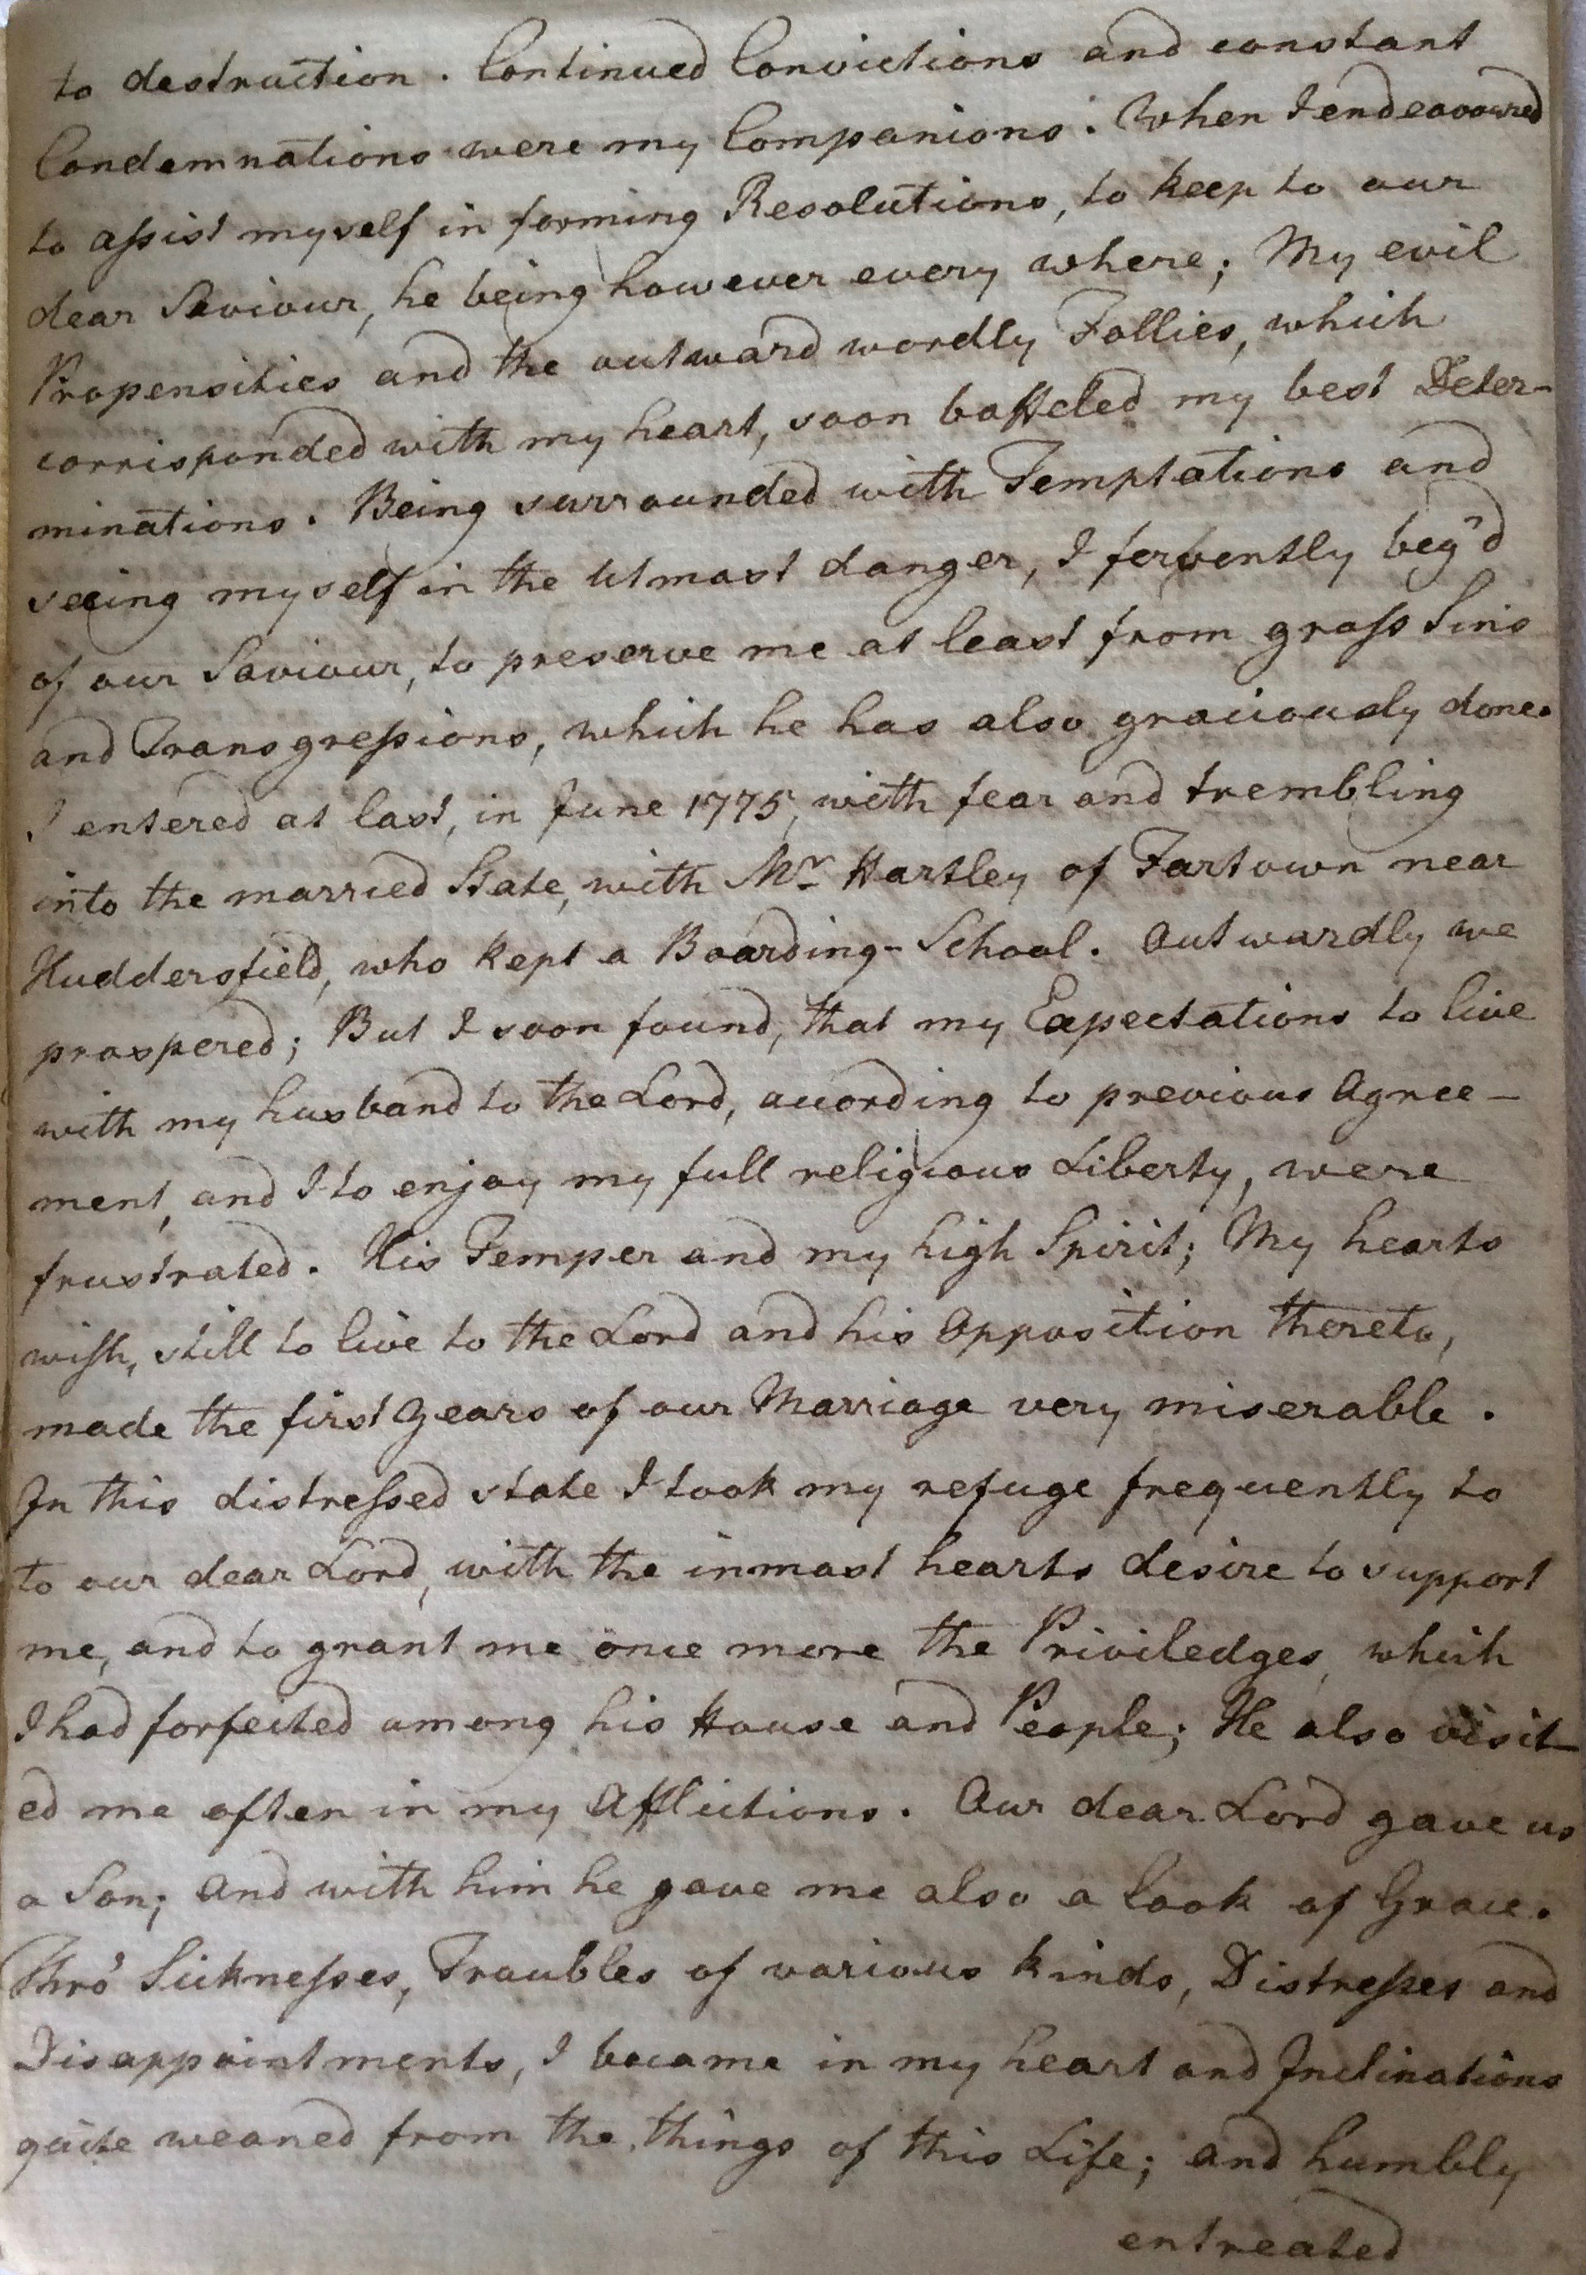 to destruction. Continued Convictions and constant
Condemnations were my Companions. When I endeavoured
to assist myself in forming Resolutions, to keep to our
dear Saviour, he being however every where; My evil
Propensities and the outward wordly Follies, which
corrisponded with my heart, soon baffeled my best Deter-
minations. Being surrounded with Temptations and
seeing myself in the Utmost danger, I fervently beg'd
of our Saviour, to preserve me at least from gross Sins
and Transgressions, which he has also graciously done.
I entered at last, in June 1775, with fear and trembling
into the married State, with Mr Hartley of Fartown near
Huddersfield, who kept a Boarding-School. Outwardly we
prospered; But I soon found, that my Expectations to live
with my husband to the Lord, acording to previous Agree-
ment, and I to enjoy my full religious Liberty, were
frustrated. His Temper and my high Spirit; My hearts
wish, still to live to the Lord and his Opposition thereto,
made the first Years of our Marriage very miserable.
In this distressed state I took my refuge frequently to
to our dear Lord, with the inmost hearts desire to support
me, and to grant me once more the Priviledges, which
I had forfeited among his House and People; He also visit-
ed me often in my Afflictions. Our dear Lord gave us
a Son; and with him he gave me also a look of Grace.
Thro' Sicknesses, Troubles of various kinds, Distresses and
Disappointments, I became in my heart and Inclinations
quite weaned from the things of this Life; and humbly
entreated